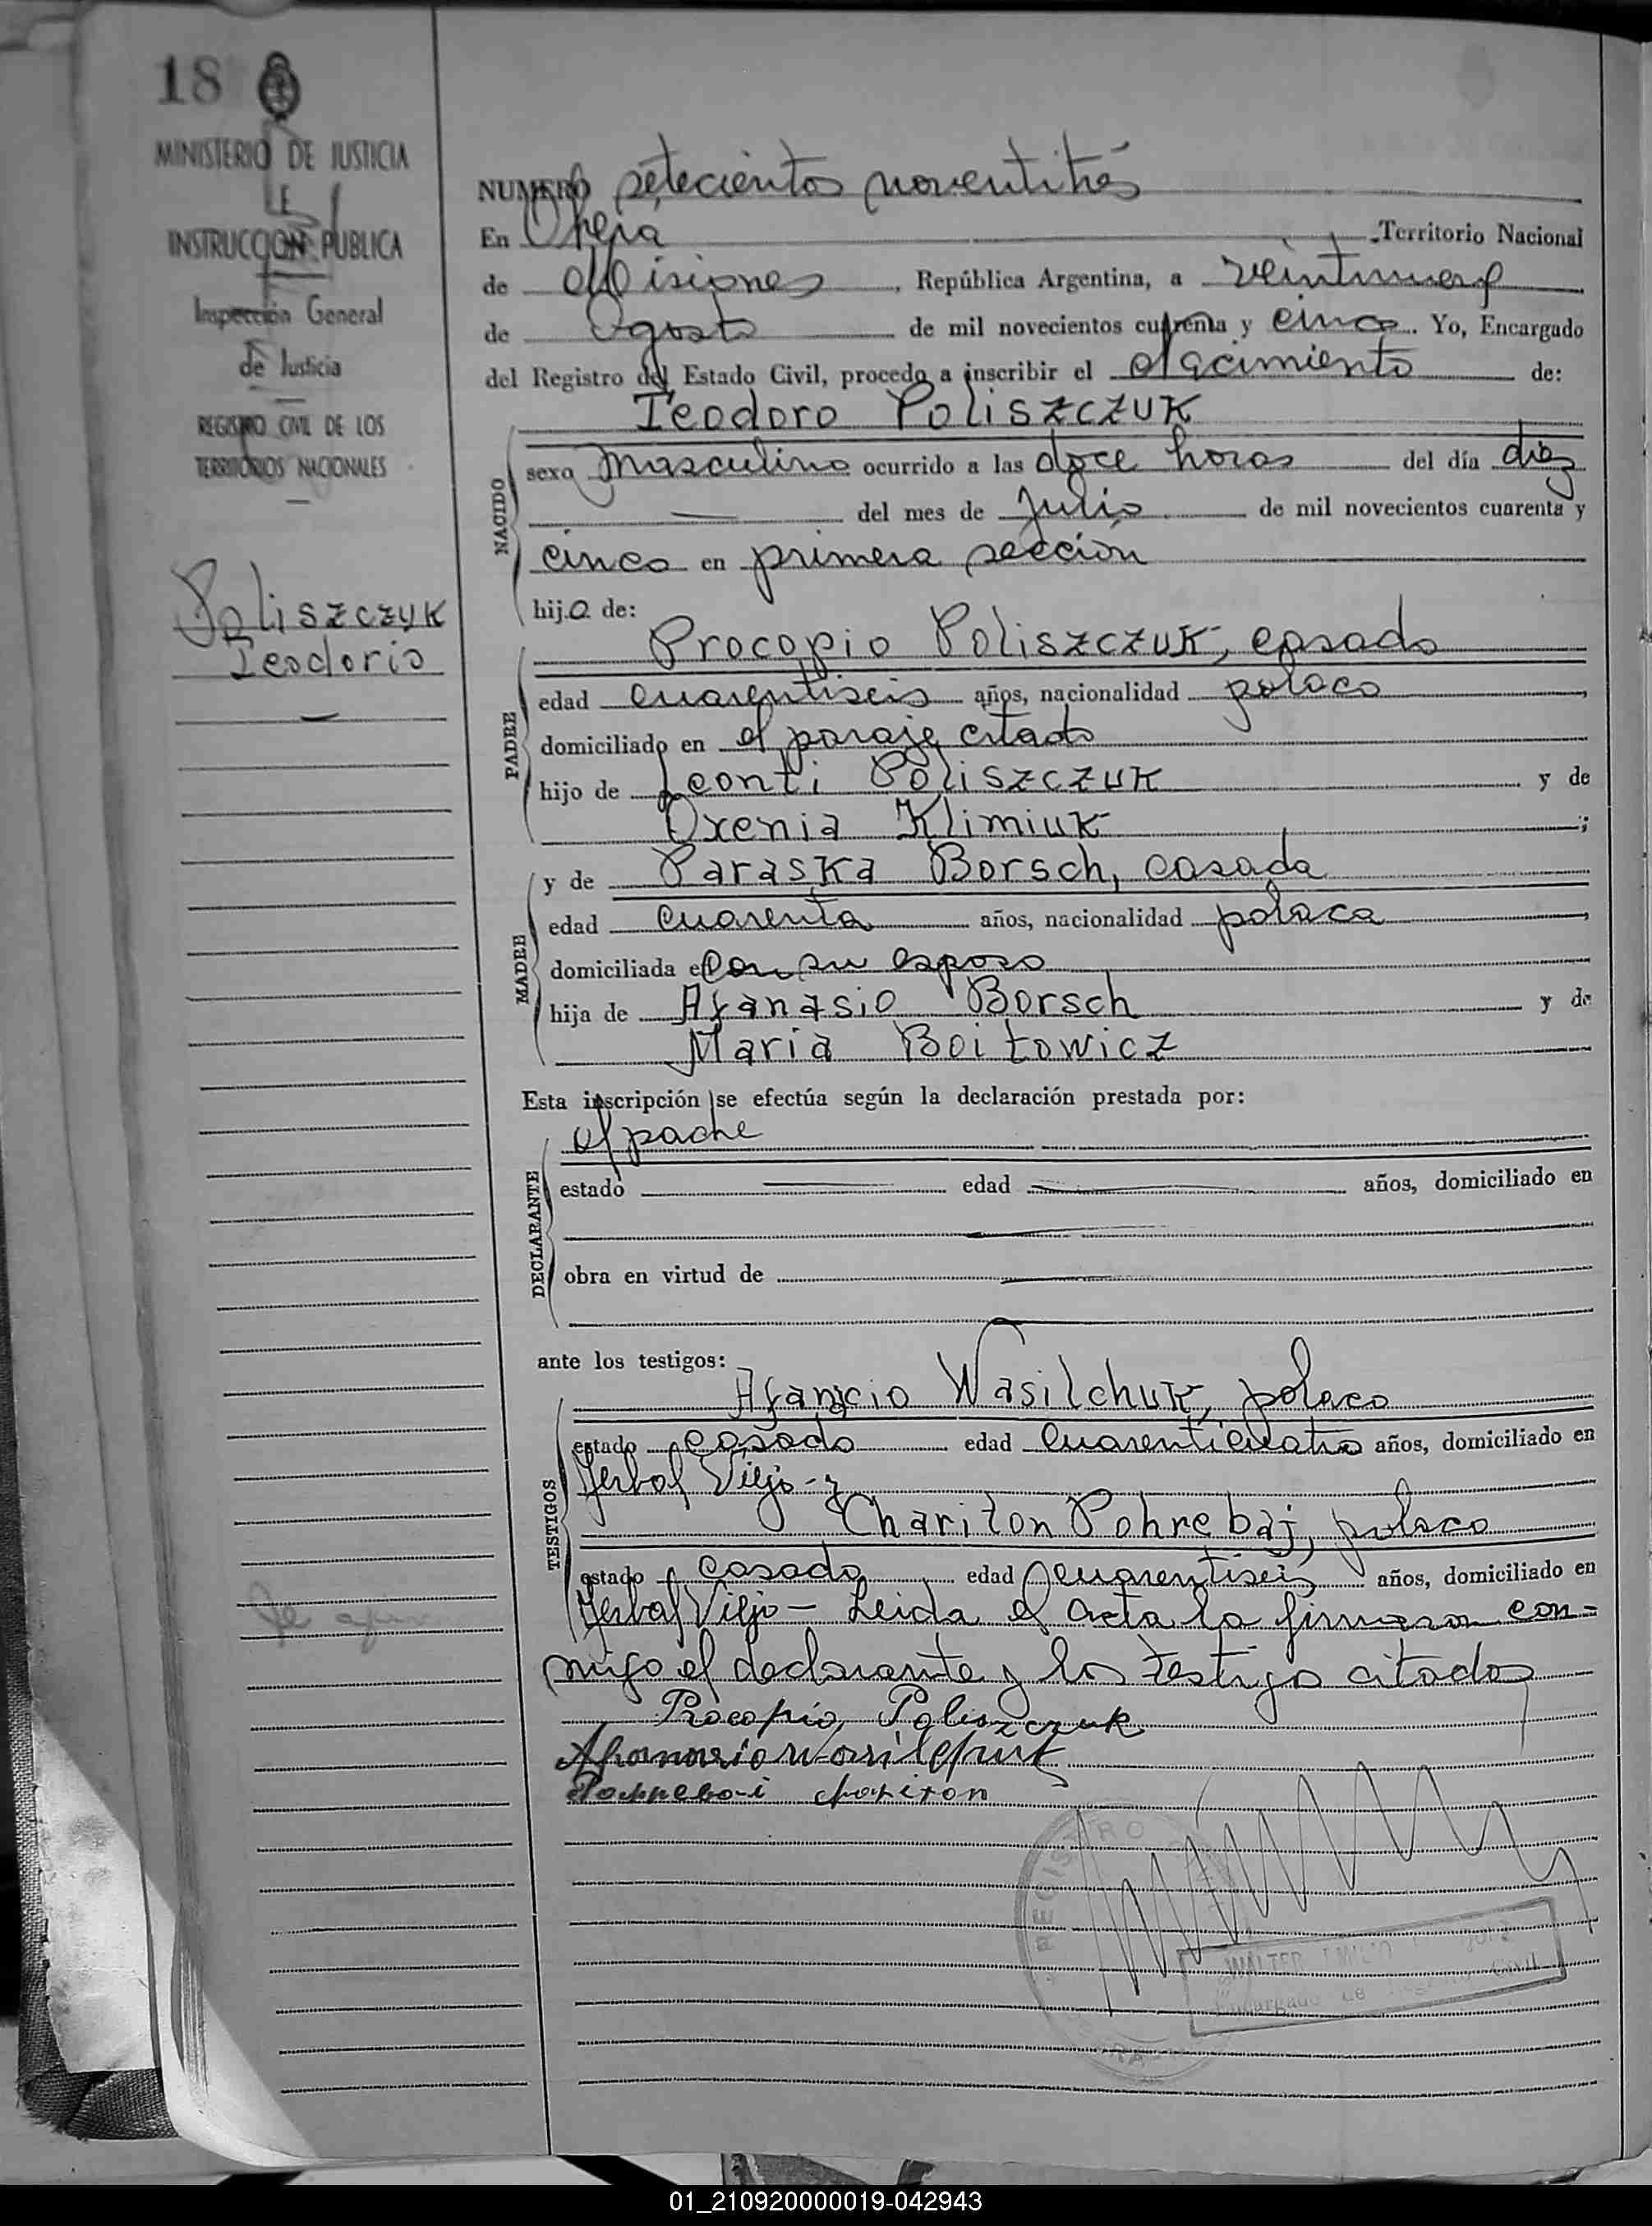 18
MINISTERIO DE JUSTICIA
E
INSTRUCCION PUBLICA
Inspección General
de Justicia
REGISTRO CIVIL DE LOS
TERRITORIOS NACIONALES
Poliszczuk
Teodorio
NUMERO setecientos noventitrés
En Oberá Territorio Nacional
de Misiones, República Argentina, a veintinueve
de Agosto de mil novecientos cuarenta y cinco. Yo, Encargado
del Registro del Estado Civil, procedo a inscribir el Nacimiento de:
Teodoro Poliszczuk
NACIDO
sexo masculino ocurrido a las doce horas del día diez
del mes de Julio de mil novecientos cuarenta y
cinco en primera sección
hijo de:
Procopio Poliszczuk, casado
PADRE
edad cuarentiseis años, nacionalidad polaco
domiciliado en el paraje citado
hijo de Leonti Poliszczuk y de
Oxenia Klimiuk;
y de Paraska Borsch, casada
MADRE
edad cuarenta años, nacionalidad polaca
domiciliada con su esposo
hija de Afanasio Borsch y de
Maria Boitowicz
Esta inscripción se efectúa según la declaración prestada por:
el padre
DECLARANTE
estado edad años, domiciliado en
obra en virtud de
ante los testigos:
Afanacio Wasilchuk, polaco
TESTIGOS
estado casado edad cuarenticuatro años, domiciliado en
Yerbal Viejo - y
Chariton Pohrebaj, polaco
estado casado edad cuarentiseis años, domiciliado en
Yerbal Viejo - Leida el acta la firmaron con-
migo el declarante y los testigos citados
Procopio Poliszczuk
REGISTRO
WALTER EMILIO
Encargado de Registro Civil
01_210920000019-042943